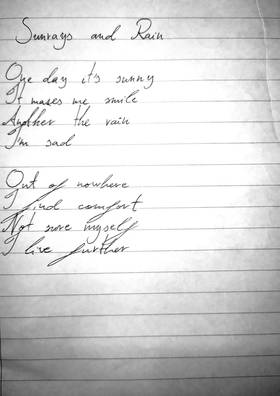 Sunrays and Rain
One day it's sunny
It makes me smile
Another the rain
I'm sad
Out of nowhere
I find comfort
Not more myself
I live further